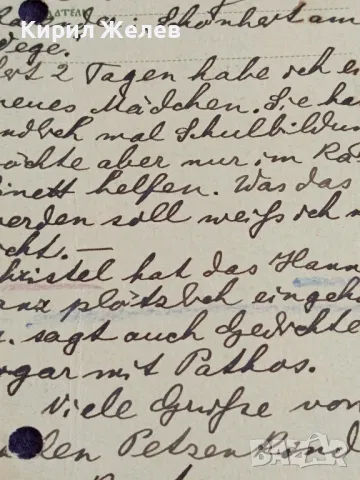 Кирил Желев
АТЕЛ
Schönheit am
Wege.
2 Tagen habe ich
neues Mädchen. Sie ha
endlich mal Schulbildu
möchte aber nur im
helfen. Was das
werden soll weiß ich
icht. —
Christel hat das Hann
anz plötzlich eingeh
sagt auch Gedichte
ogar mit Pathos.
Viele Grüße von
bazar